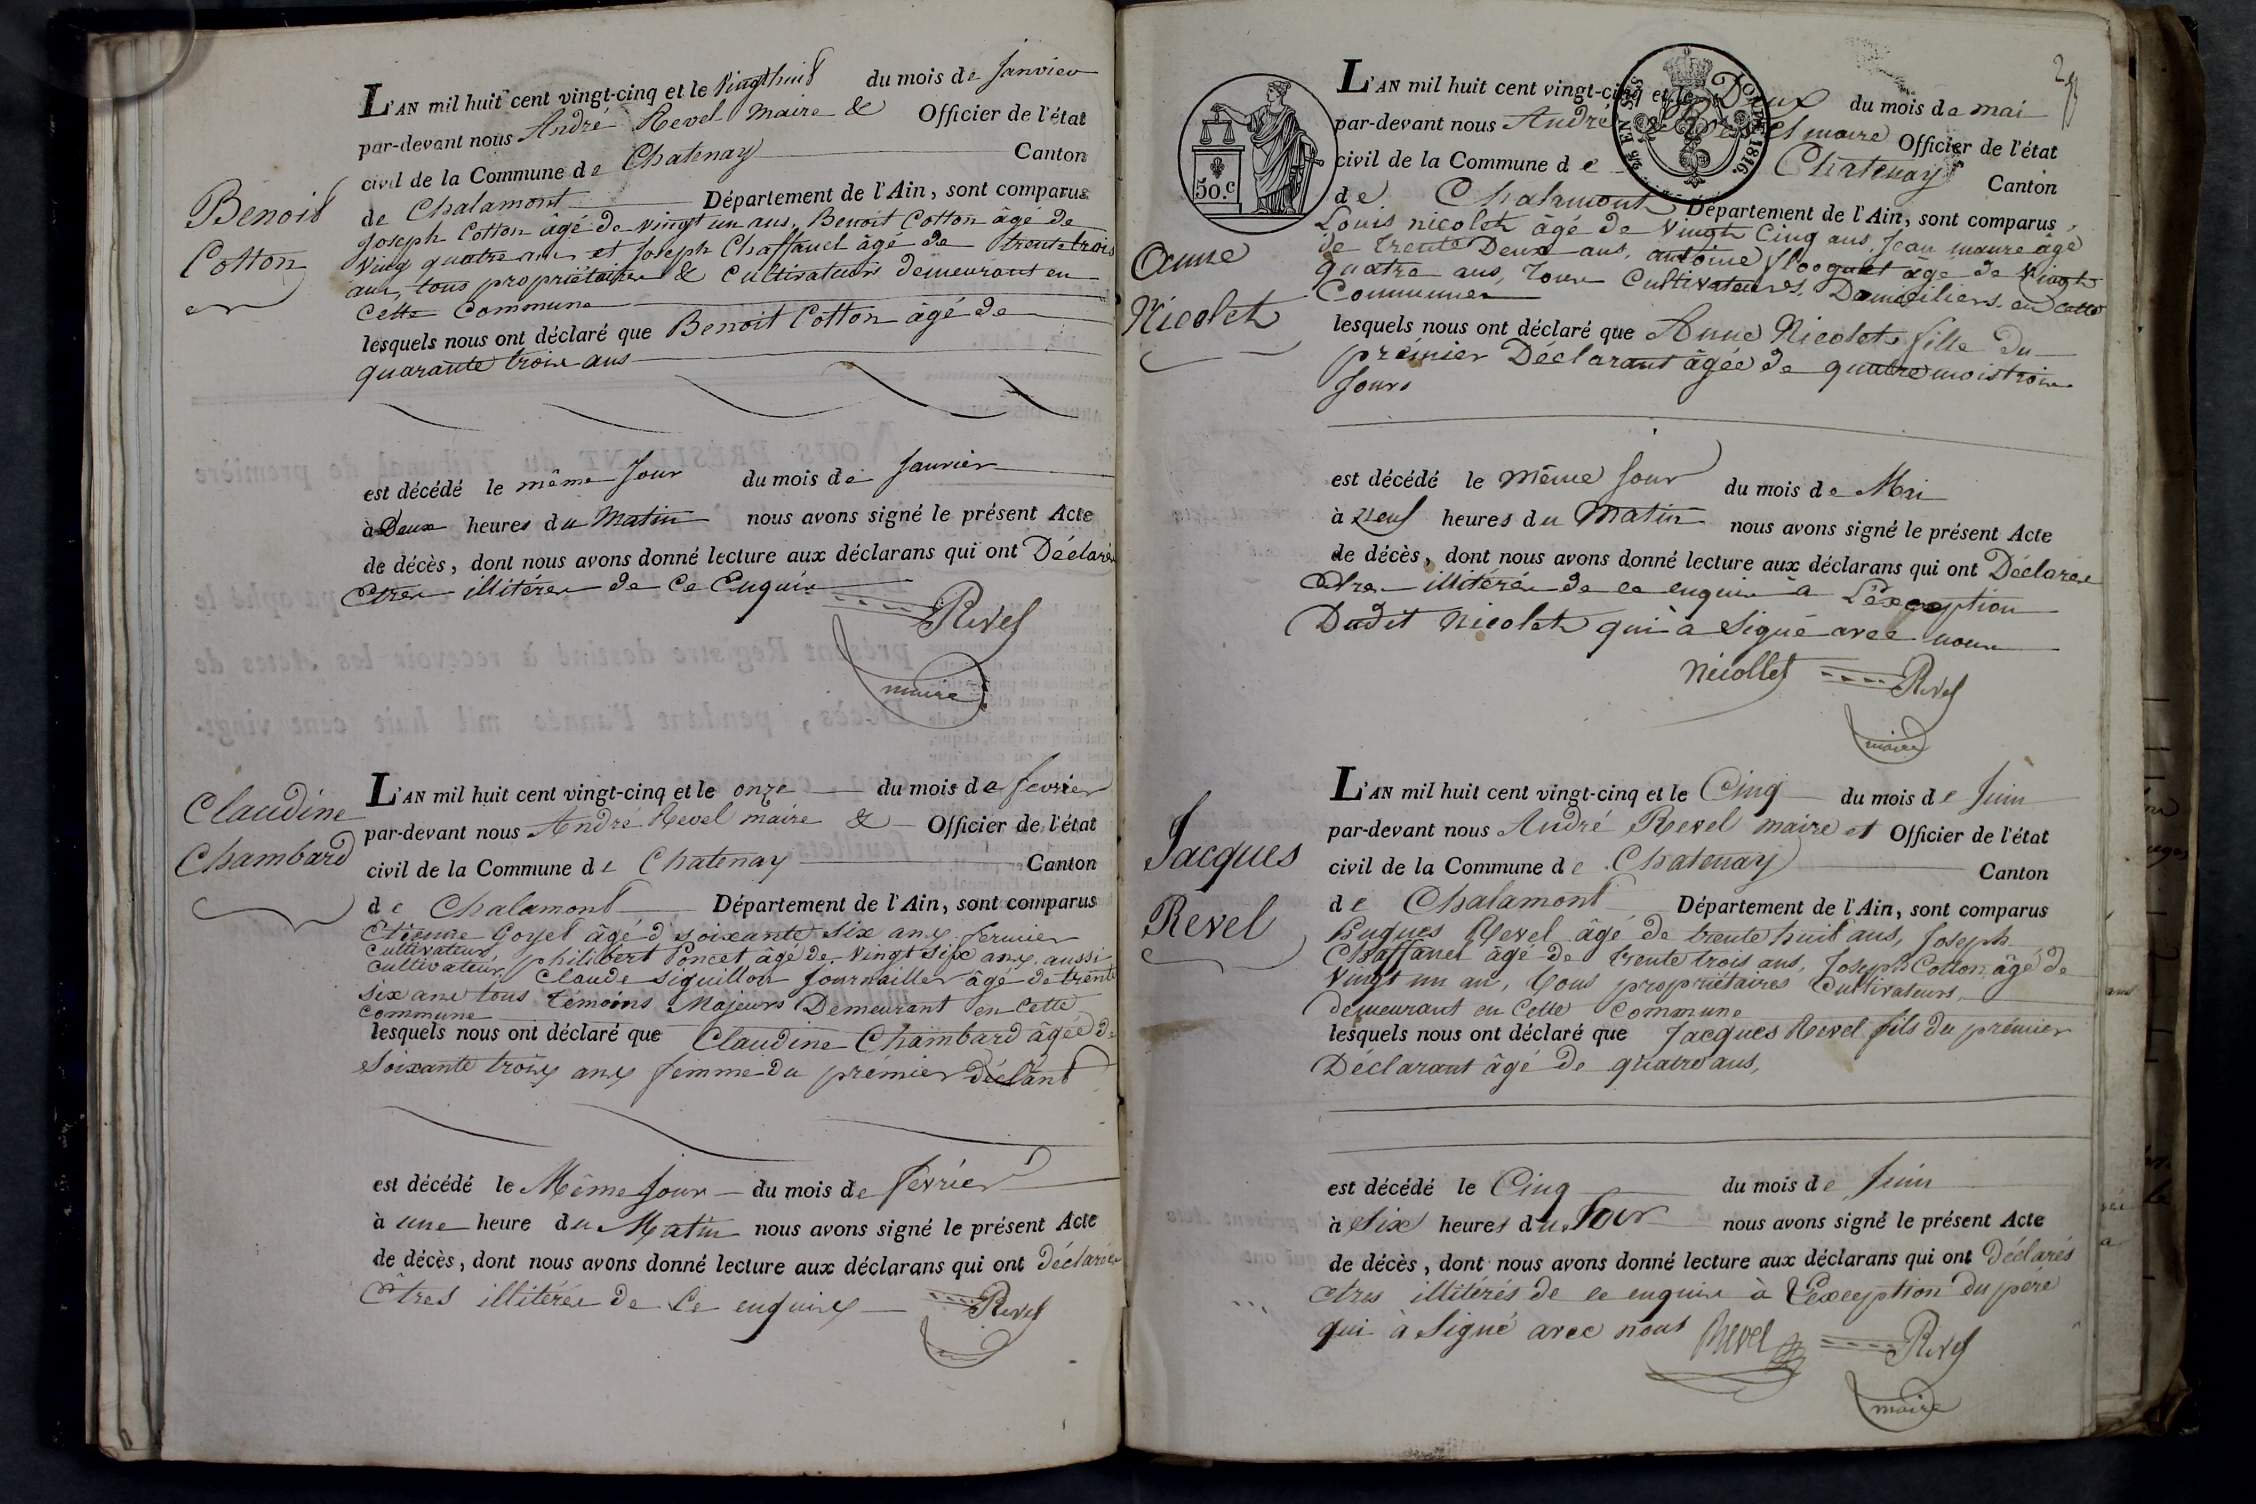 Benoit
Cotton
L'AN mil huit cent vingt-cinq et le vingt huit du mois de Janvier
par-devant nous André Revel maire & Officier de l'état
civil de la Commune de Chatenay Canton
de Chalamont Département de l'Ain, sont comparus
Joseph Cotton âgé de vingt un ans, Benoit Cotton âgé de
vingt quatre ans et Joseph Chaffanel âgé de trente trois
ans, tous propriétaires & cultivateurs demeurant en
cette commune
lesquels nous ont déclaré que Benoit Cotton âgé de
quarante trois ans
est décédé le même Jour du mois de Janvier
à Deux heures du Matin nous avons signé le présent Acte
de décès, dont nous avons donné lecture aux déclarans qui ont Déclarés
Etres illitéres de ce Enquis
Revel
maire
Claudine
Chambard
L'AN mil huit cent vingt-cinq et le onze du mois de fevrier
par-devant nous André Revel maire & Officier de l'état
civil de la Commune de Chatenay Canton
de Chalamont Département de l'Ain, sont comparus
Etienne Goyet âgé d soixante six ans fermier
cultivateur, philibert Poncet âgé de vingt six ans aussi
cultivateur, Claude Siguillon Journailler âgé de trente
six ans tous témoins Majeurs Demeurant en Cette
commune
lesquels nous ont déclaré que Claudine Chambard âgée de
soixante trois ans femme du prémier déclant
est décédé le Même Jour du mois de février
à une heure du Matin nous avons signé le présent Acte
de décès, dont nous avons donné lecture aux déclarans qui ont déclarés
êtres illitérés de Ce enquis
Revel
2
50.c
EN SUS
1816
Anne
Nicolet
L'AN mil huit cent vingt-cinq et le Deux du mois de mai
par-devant nous André Revel maire Officier de l'état
civil de la Commune de Chatenay Canton
de Chalamont Département de l'Ain, sont comparus
Louis nicolet âgé de vingt Cinq ans, Jean maure âgé
de trente Deux ans, antoine âgé de vingt
quatre ans, tous Cultivateurs Domiciliers en cette
Communes
lesquels nous ont déclaré que Anne Nicolet fille du
prémier Déclarant âgée de quatre mois trois
Jours
est décédé le même Jour du mois de Mai
à neuf heures du Matin nous avons signé le présent Acte
de décès, dont nous avons donné lecture aux déclarans qui ont Déclarés
Etres illitérés de ce enquis à L'exception
Dudit Nicolet qui à Signé avec nous
Nicollet Revel
maire
Jacques
Revel
L'AN mil huit cent vingt-cinq et le Cinq du mois de Juin
par-devant nous André Revel maire et Officier de l'état
civil de la Commune de Chatenay Canton
de Chalamont Département de l'Ain, sont comparus
hugues Revel âgé de trente huit ans, Joseph
Chaffanel âgé de trente trois ans, Joseph Cotton âgé de
vingt un an, tous propriétaires Cultivateurs,
demeurant en Cette Commune
lesquels nous ont déclaré que Jacques Revel fils du prémier
Déclarant âgé de quatre ans,
est décédé le Cinq du mois de Juin
à Six heures du Soir nous avons signé le présent Acte
de décès, dont nous avons donné lecture aux déclarans qui ont Déclarés
etres illitérés de ce enquis à L'exception du père
qui à Signé avec nous Revel Revel
maire